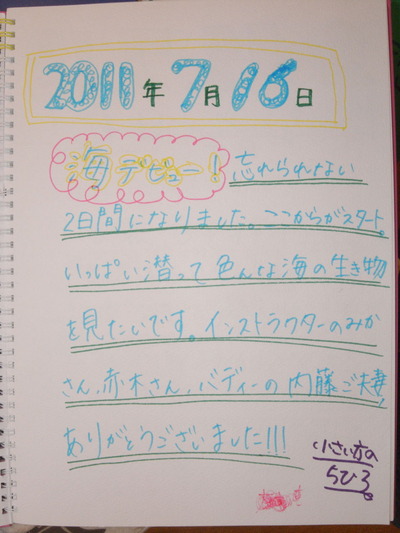 2011年7月16日
海デビュー！忘れられない
2日間になりました。ここからがスタート。
いっぱい潜って色んな海の生き物
を見たいです。インストラクターのみか
さん、赤木さん、バディーの内藤ご夫妻、
ありがとうございました!!!
小さい方の
ちひろ。